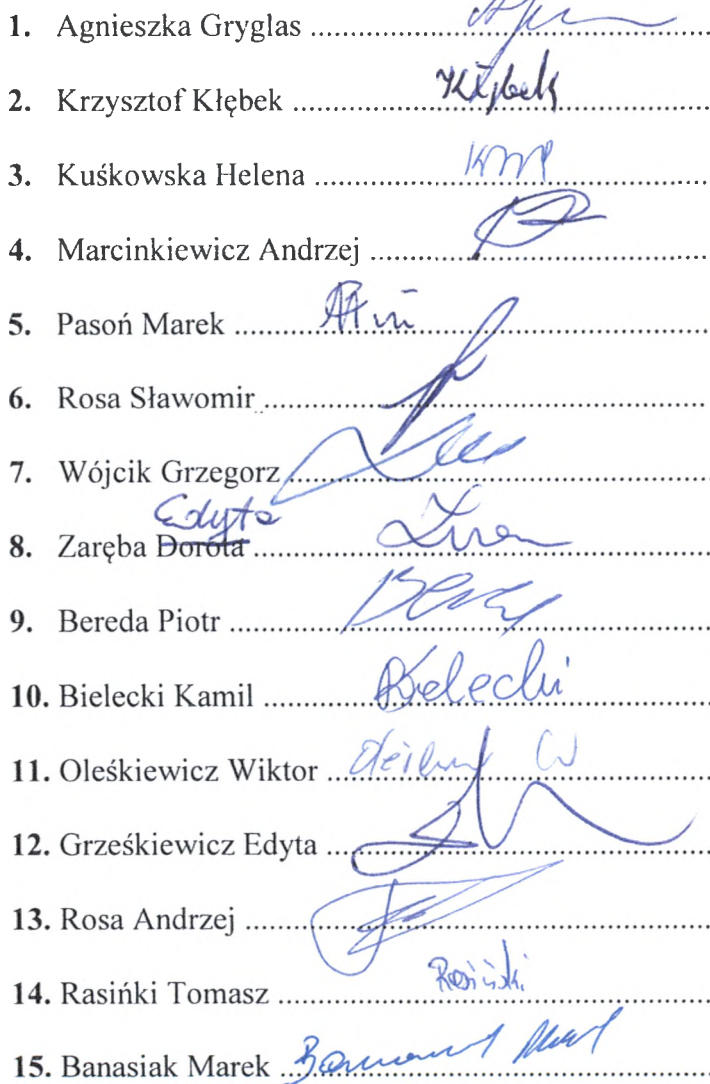 1. Agnieszka Gryglas ..........................................
2. Krzysztof Kłębek .......... Kłębek ..........
3. Kuśkowska Helena ..........................................
4. Marcinkiewicz Andrzej ..........................................
5. Pasoń Marek ..........................................
6. Rosa Sławomir ..........................................
7. Wójcik Grzegorz ..........................................
Edyta
8. Zaręba Dorota ..........................................
9. Bereda Piotr ..........................................
10. Bielecki Kamil .......... Bielecki ..........
11. Oleśkiewicz Wiktor .......... W ..........
12. Grześkiewicz Edyta ..........................................
13. Rosa Andrzej ..........................................
14. Rasińki Tomasz .......... Rasiński ..........
15. Banasiak Marek ..........................................